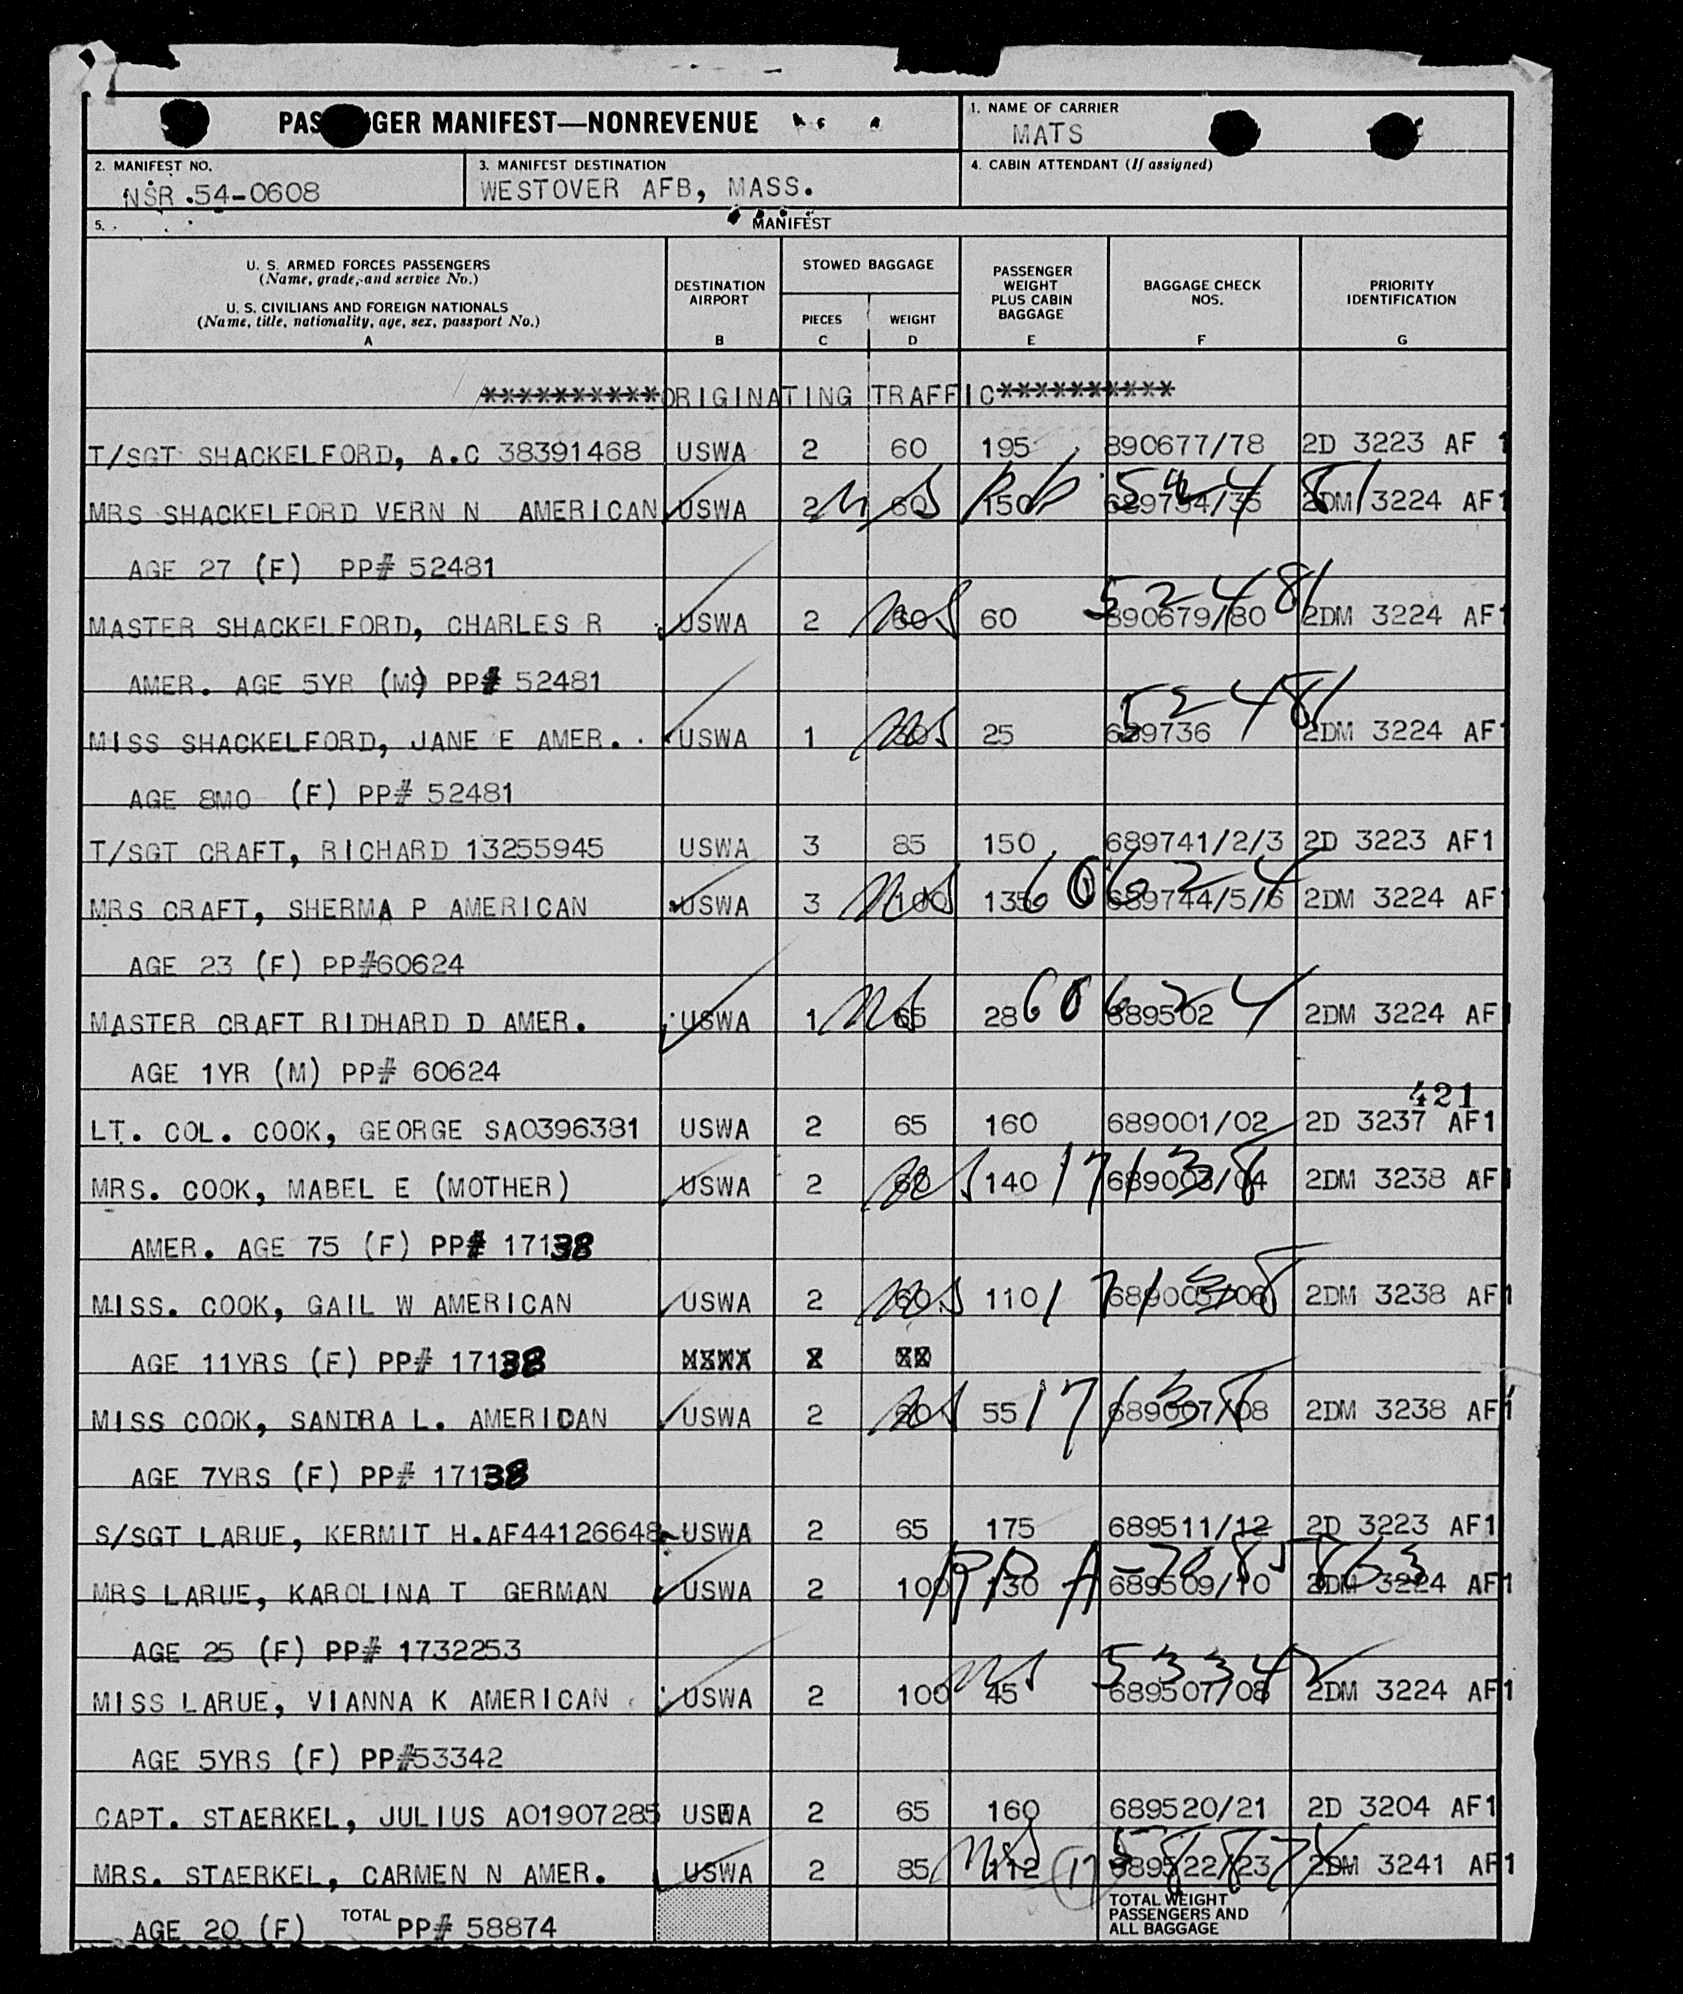 PAS GER MANIFEST—NONREVENUE
1. NAME OF CARRIER
MATS
2. MANIFEST NO.
NSR 54-0608
3. MANIFEST DESTINATION
WESTOVER AFB, MASS.
4. CABIN ATTENDANT (If assigned)
5.
MANIFEST
U. S. ARMED FORCES PASSENGERS
(Name, grade, and service No.)
U. S. CIVILIANS AND FOREIGN NATIONALS
(Name, title, nationality, age, sex, passport No.)
A
DESTINATION
AIRPORT
B
STOWED BAGGAGE
PIECES
C
WEIGHT
D
PASSENGER
WEIGHT
PLUS CABIN
BAGGAGE
E
BAGGAGE CHECK
NOS.
F
PRIORITY
IDENTIFICATION
G
**********ORIGINATING TRAFFIC**********
T/SGT SHACKELFORD, A.C 38391468 USWA 2 60 195 890677/78 2D 3223 AF 1
MRS SHACKELFORD VERN N AMERICAN USWA 2 60 150 689734/35 2DM 3224 AF1
52481
AGE 27 (F) PP# 52481
52481
MASTER SHACKELFORD, CHARLES R USWA 2 60 60 890679/80 2DM 3224 AF1
AMER. AGE 5YR (M9) PP# 52481
52481
MISS SHACKELFORD, JANE E AMER. USWA 1 30 25 689736 2DM 3224 AF1
AGE 8MO (F) PP# 52481
T/SGT CRAFT, RICHARD 13255945 USWA 3 85 150 689741/2/3 2D 3223 AF1
60624
MRS CRAFT, SHERMA P AMERICAN USWA 3 100 135 689744/5/6 2DM 3224 AF1
AGE 23 (F) PP#60624
60624
MASTER CRAFT RIDHARD D AMER. USWA 1 65 28 689502 2DM 3224 AF1
AGE 1YR (M) PP# 60624
421
LT. COL. COOK, GEORGE SA0396381 USWA 2 65 160 689001/02 2D 3237 AF1
17138
MRS. COOK, MABEL E (MOTHER) USWA 2 60 140 689003/04 2DM 3238 AF1
AMER. AGE 75 (F) PP# 17138
17138
MISS. COOK, GAIL W AMERICAN USWA 2 60 110 689005/06 2DM 3238 AF1
AGE 11YRS (F) PP# 17138
17138
MISS COOK, SANDRA L. AMERICAN USWA 2 60 55 689007/08 2DM 3238 AF1
AGE 7YRS (F) PP# 17138
S/SGT LARUE, KERMIT H.AF44126648 USWA 2 65 175 689511/12 2D 3223 AF1
MRS LARUE, KAROLINA T GERMAN USWA 2 100 130 689509/10 2DM 3224 AF1
AGE 25 (F) PP# 1732253
53342
MISS LARUE, VIANNA K AMERICAN USWA 2 100 45 689507/08 2DM 3224 AF1
AGE 5YRS (F) PP#53342
CAPT. STAERKEL, JULIUS A01907285 USWA 2 65 160 689520/21 2D 3204 AF1
58874
MRS. STAERKEL, CARMEN N AMER. USWA 2 85 112 689522/23 2DM 3241 AF1
AGE 20 (F) TOTAL PP# 58874
TOTAL WEIGHT
PASSENGERS AND
ALL BAGGAGE